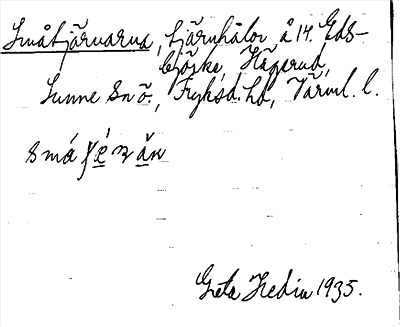 Småtjärnarna, tjärnhålor å 14. Eds-
björke, Hägerud,
Sunne sn ö., Fryksd. hd, Värml. l.
Greta Hedin 1935.